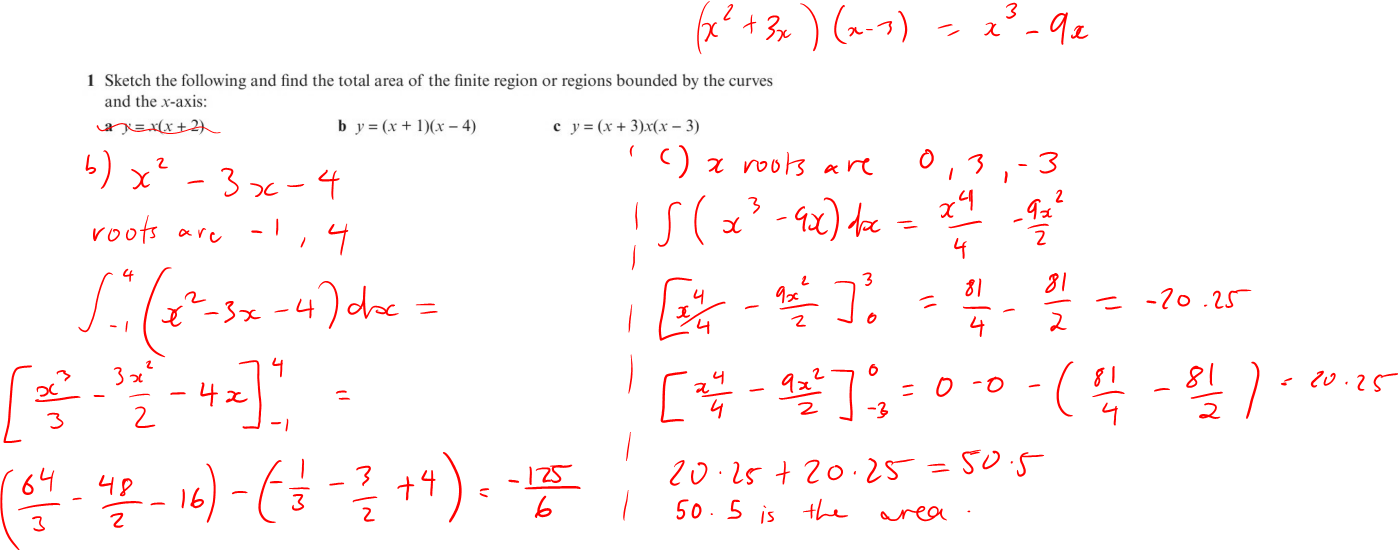 (x² + 3x)(x-3) = x³ - 9x
1 Sketch the following and find the total area of the finite region or regions bounded by the curves
and the x-axis:
a y = x(x + 2) b y = (x + 1)(x − 4) c y = (x + 3)x(x − 3)
b) x² - 3x - 4
roots are -1, 4
∫₋₁⁴ (x² - 3x - 4) dx =
[x³/3 - 3x²/2 - 4x]₋₁⁴ =
(64/3 - 48/2 - 16) - (-1/3 - 3/2 + 4) = -125/6
c) x roots are 0, 3, -3
∫(x³ - 9x) dx = x⁴/4 - 9x²/2
[x⁴/4 - 9x²/2]₀³ = 81/4 - 81/2 = -20.25
[x⁴/4 - 9x²/2]₋₃⁰ = 0 - 0 - (81/4 - 81/2) = 20.25
20.25 + 20.25 = 50.5
50.5 is the area.